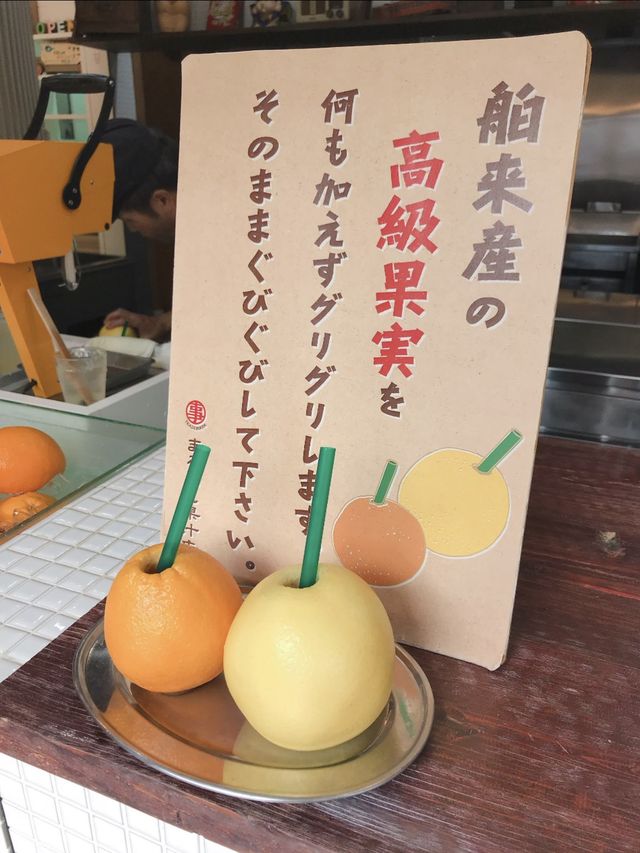 舶来産の
高級果実を
何も加えずグリグリします
そのままぐびぐびして下さい。
OPEN